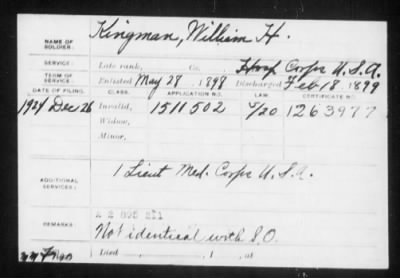 Kingman, William H.
NAME OF SOLDIER:
SERVICE: Late rank, Co. Hosp Corps U.S.A.
TERM OF SERVICE: Enlisted May 28 1898 Discharged Feb 18, 1899
DATE OF FILING. CLASS. APPLICATION NO. LAW. CERTIFICATE NO.
1924 Dec 26 Invalid, 1511502 6/20 1263977
Widow,
Minor,
ADDITIONAL SERVICES: 1 Lieut Med. Corps U.S.A.
2 805 211
REMARKS: Not identical with S.O.
Died , 1 , at